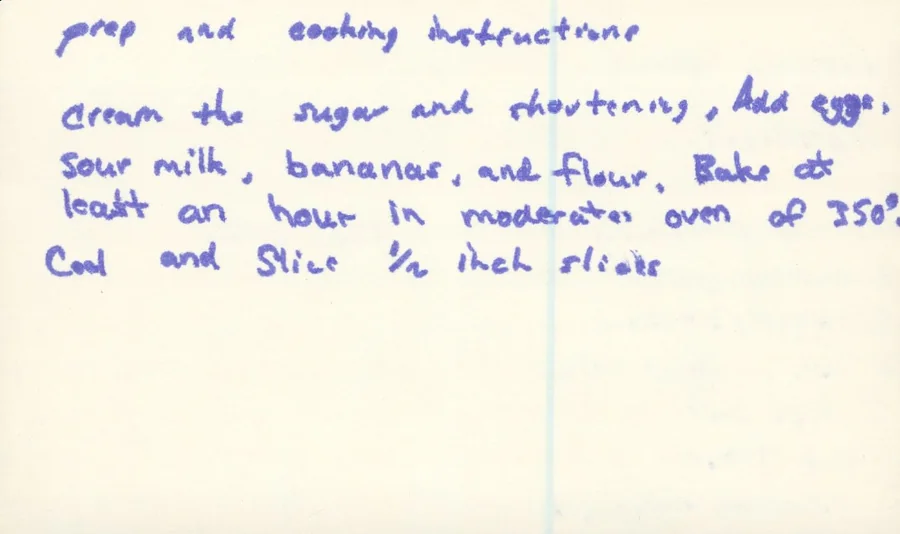 prep and cooking instructions
cream the sugar and shortening, Add eggs,
sour milk, bananas, and flour. Bake at
least an hour in moderate oven of 350°.
Cool and Slice 1/2 inch slices